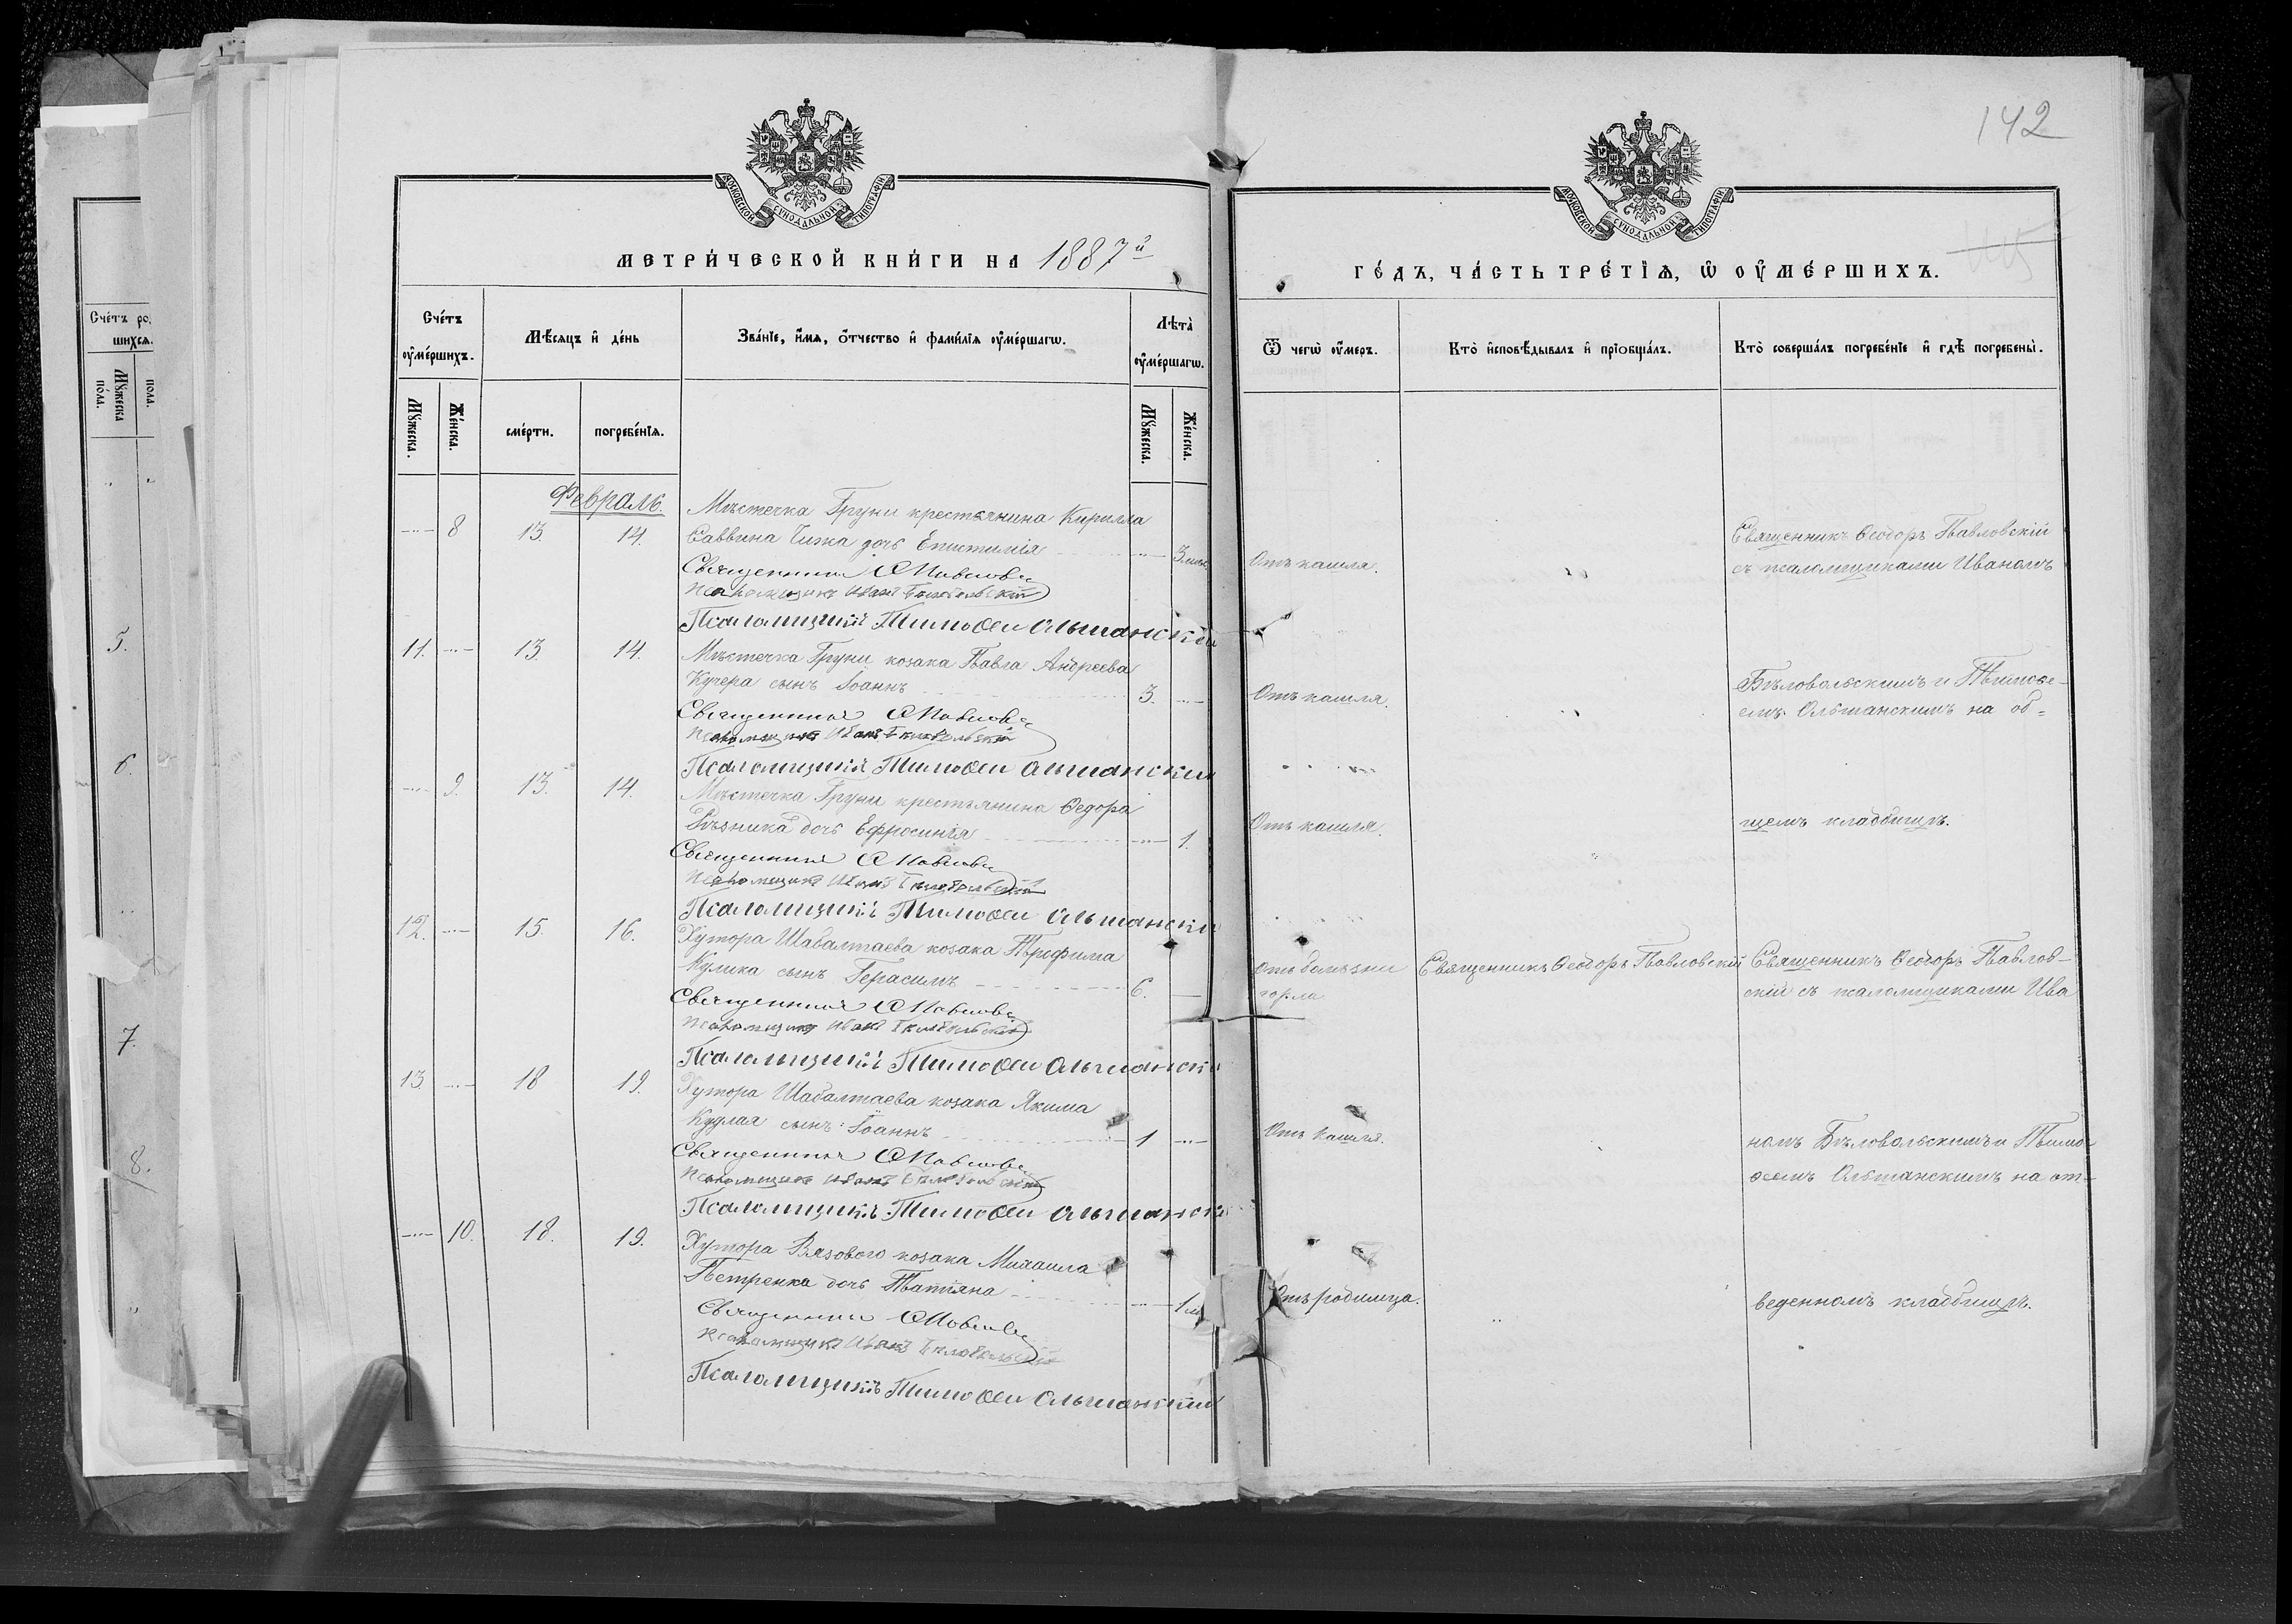 142
МОСКОВСКОЙ СѴНОДАЛЬНОЙ ТИПОГРАФІИ
МЕТРИ́ЧЕСКОЙ КНИ́ГИ НА 1887й
Сче́тъ оу҆ме́ршихъ.
Мѣ́сяцъ и҆ де́нь
Зва́нїе, и҆́мя, ѻ҆́тчество и҆ фами́лїя оу҆ме́ршагѡ.
Лѣта̀ оу҆ме́ршагѡ.
Мꙋ́жеска.
Же́нска.
сме́рти.
погребе́нїя.
Мꙋ́жеска.
Же́нска.
Февраль.
---- 8 13. 14. Мѣстечка Груни крестьянина Кирилла
Саввина Чижа дочь Епистимія ---- 3 мѣс.
Священникъ Ѳ Павловс
Псаломщикъ Иванъ Бѣловольскій
Псаломщикъ Тимоѳей Ольшанскій
11. ---- 13. 14. Мѣстечка Груни козака Павла Андреева
Кучера сынъ Іоаннъ 3. ----
Священникъ Ѳ Павловс
Псаломщикъ Иванъ Бѣловольскій
Псаломщикъ Тимоѳей Ольшанскій
---- 9. 13. 14. Мѣстечка Груни крестьянина Ѳедора
Рѣзника дочь Ефросинія ---- 1.
Священникъ Ѳ Павловс
Псаломщикъ Иванъ Бѣловольскій
Псаломщикъ Тимоѳей Ольшански
12. ---- 15. 16. Хутора Шабалтаева козака Трофима
Кулика сынъ Герасимъ 6. ----
Священникъ Ѳ Павловс
Псаломщикъ Иванъ Бѣловольскій
Псаломщикъ Тимоѳей Ольшански
13 ---- 18 19. Хутора Шабалтаева козака Якима
Кудлая сынъ Іоаннъ 1 ----
Священникъ Ѳ Павловс
Псаломщикъ Иванъ Бѣловольскій
Псаломщикъ Тимоѳей Ольшанск
---- 10. 18. 19. Хутора Вязового козака Михаила
Петренка дочь Татіяна ---- 1 м
Священникъ Ѳ Павловс
Псаломщикъ Иванъ Бѣловольскій
Псаломщикъ Тимоѳей Ольшанскій
МОСКОВСКОЙ СѴНОДАЛЬНОЙ ТИПОГРАФІИ
ГО́ДЪ, ЧА́СТЬ ТРЕ́ТЇЯ, Ѡ҆ ОУ҆МЕ́РШИХЪ.
Ѿ чегѡ̀ оу҆́меръ.
Кто̀ и҆сповѣ́дывалъ и҆ прїобща́лъ.
Кто̀ соверша́лъ погребе́нїе и҆ гдѣ̀ погребены̀.
Священникъ Ѳеодоръ Павловскій
Отъ кашля. съ псаломщиками Иваномъ
Отъ кашля. Бѣловольскимъ и Тимоѳе-
емъ Ольшанскимъ на об=
Отъ кашля. щемъ кладбищѣ.
Отъ болѣзни горла
Священникъ Ѳеодоръ Павловскій
Священникъ Ѳеодоръ Павлов-
скій съ псаломщиками Ива
Отъ кашля. номъ Бѣловольскимъ и Тимо
ѳеемъ Ольшанскимъ на от=
Отъ родимца. веденномъ кладбищѣ.
Сче́тъ ро
шихся.
Мꙋ́жеска по́ла.
пола.
5.
6.
7.
8.